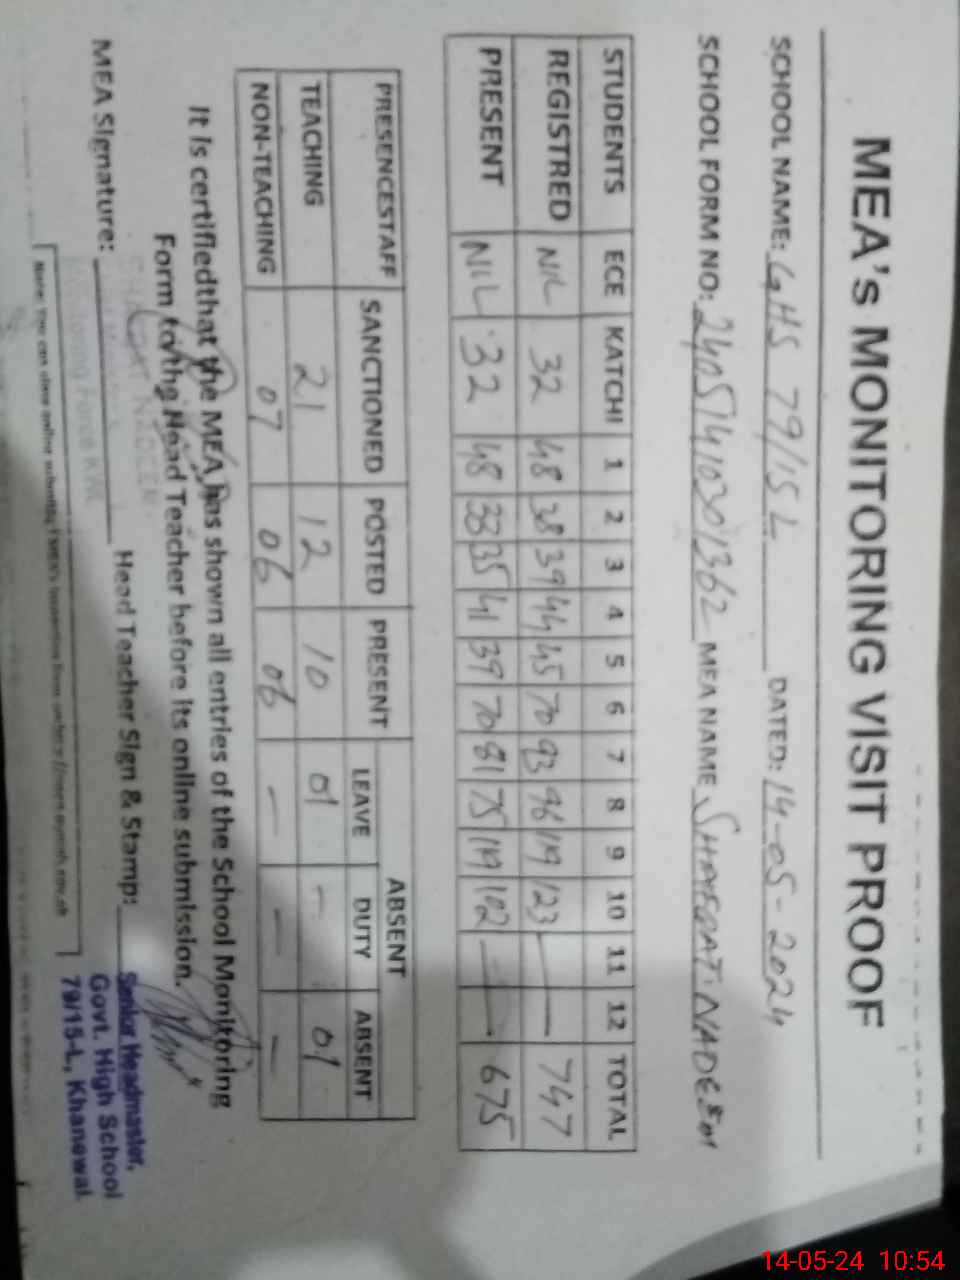 MEA's MONITORING VISIT PROOF
SCHOOL NAME: GHS 79/15L DATED: 14-05-2024
SCHOOL FORM NO: 24051410301362 MEA NAME SHAFQAT NADEEM
STUDENTS ECE KATCHI 1 2 3 4 5 6 7 8 9 10 11 12 TOTAL
REGISTRED NIL 32 48 38 39 44 45 70 93 96 119 123 — — 747
PRESENT NIL 32 48 33 35 41 39 70 81 75 119 102 — — 675
PRESENCESTAFF SANCTIONED POSTED PRESENT ABSENT
LEAVE DUTY ABSENT
TEACHING 21 12 10 01 - 01
NON-TEACHING 07 06 06 — — —
It is certifiedthat the MEA has shown all entries of the School Monitoring
Form to the Head Teacher before its online submission.
MEA Signature: Head Teacher Sign & Stamp:
Senior Headmaster,
Govt. High School
79/15-L, Khanewal.
14-05-24 10:54